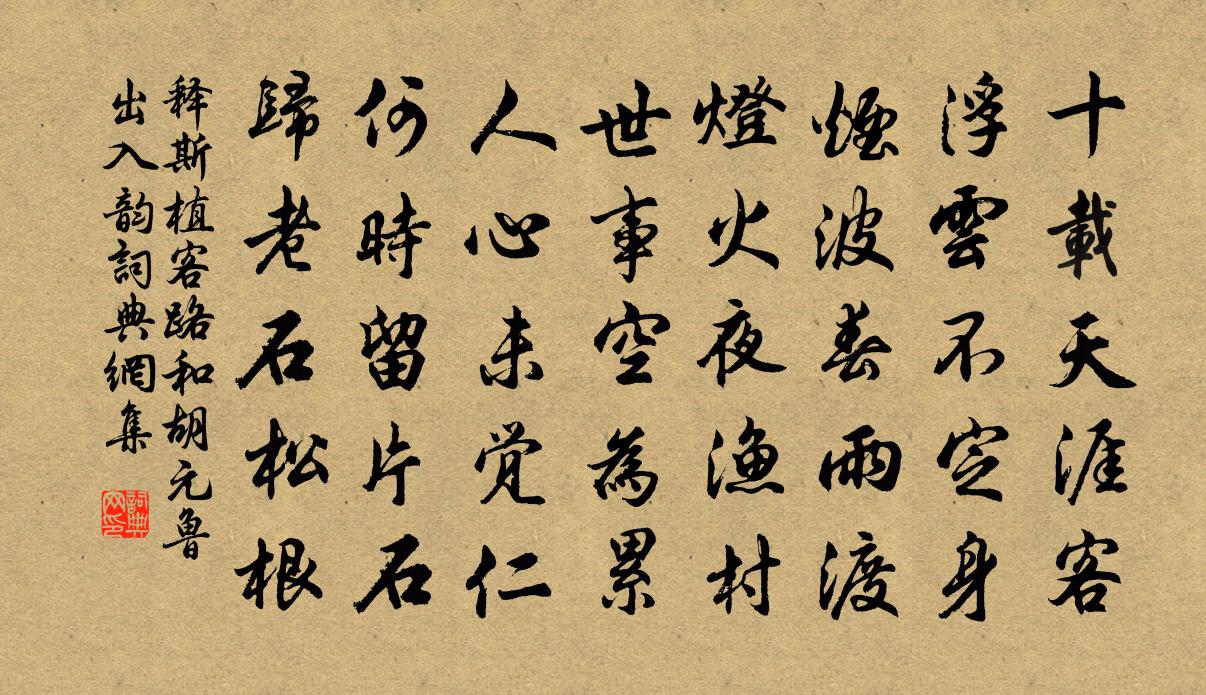 十載天涯客
浮雲不定身
煙波春雨渡
燈火夜漁村
世事空為累
人心未覺仁
何時留片石
歸老石松根
释斯植客路和胡元魯
出入韵詞典網集
詞典
网印